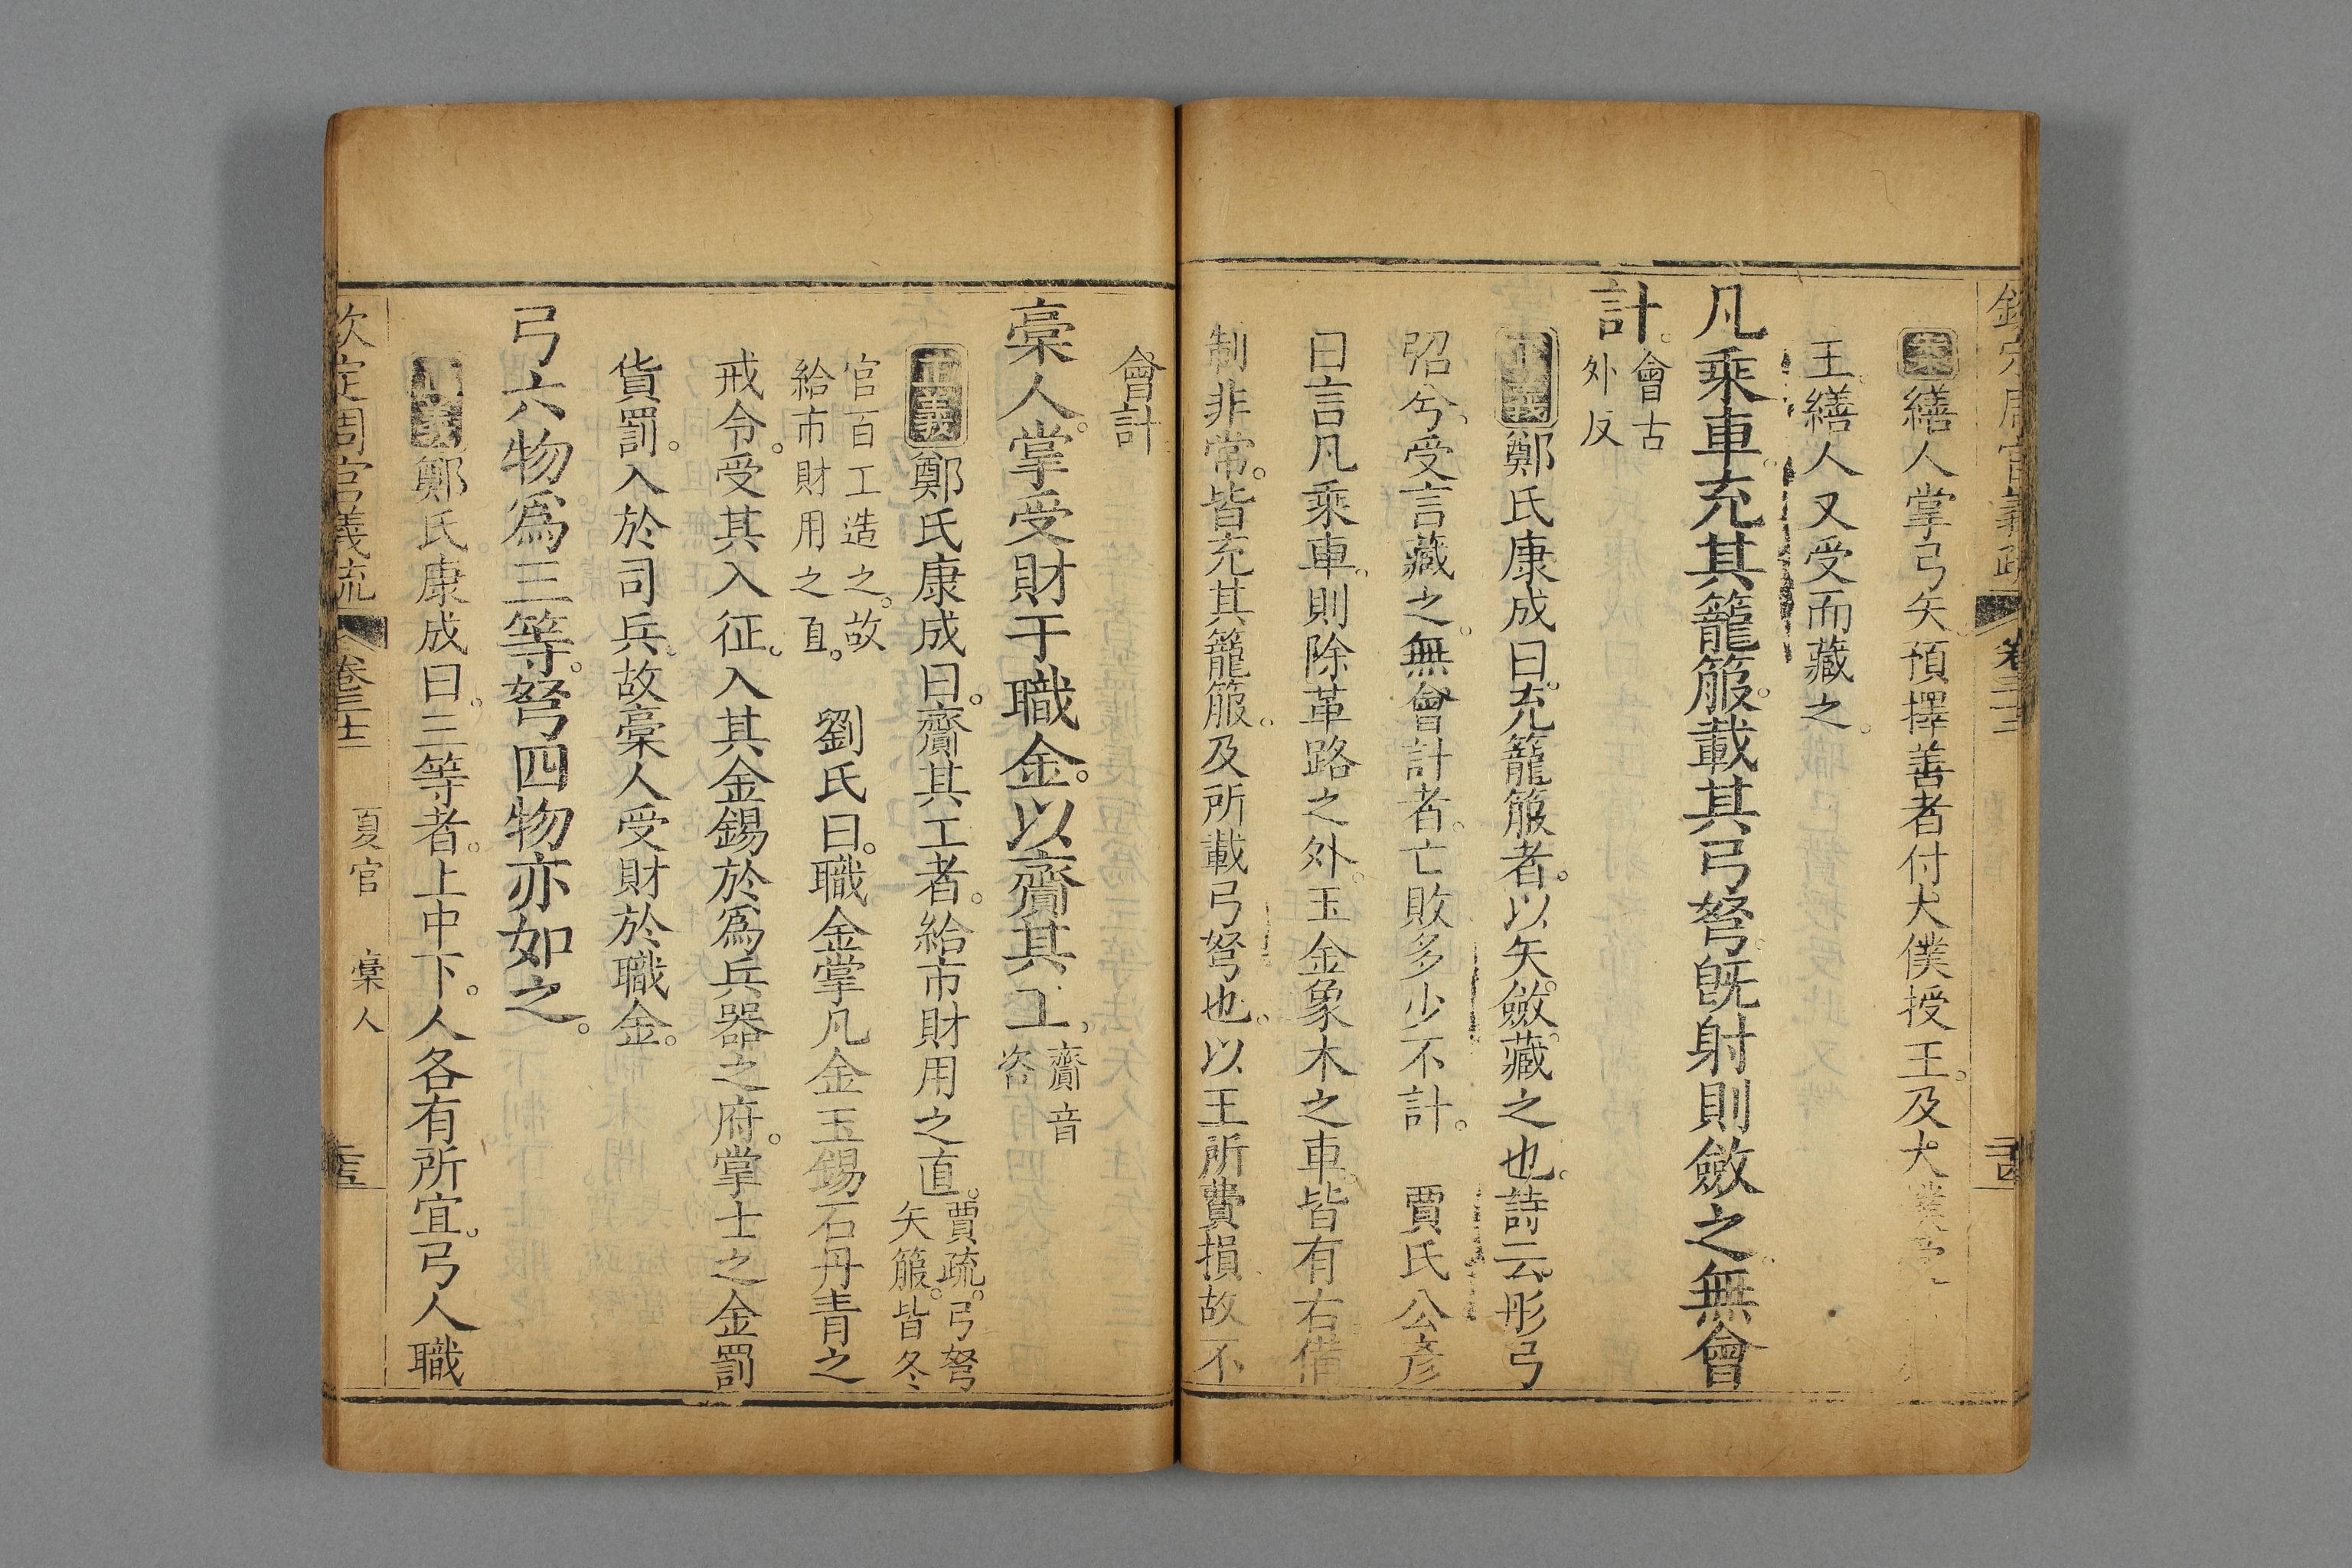 欽定周官義疏 卷三十二
案繕人掌弓矢。預擇善者付大僕授王。及大僕受
王。繕人又受而藏之。
凡乘車。充其籠箙。載其弓弩。旣射則斂之。無會
計。會古外反
正義鄭氏康成曰。充籠箙者。以矢。斂。藏之也。詩云。彤弓
弨兮。受言藏之。無會計者。亡敗多少不計。 賈氏公彥
曰言凡乘車。則除革路之外。玉金象木之車。皆有右備
制非常。皆充其籠箙。及所載弓弩也。以王所費損。故不
會計。
稾人。掌受財于職金。以齎其工。齎音咨
正義鄭氏康成曰。齎其工者。給市財用之直。賈疏。弓弩矢箙。皆冬
官百工造之。故給市財用之直。 劉氏曰。職金掌凡金玉錫石丹青之
戒令。受其入征。入其金錫於爲兵器之府。掌士之金罰
貨罰。入於司兵。故稾人受財於職金。
弓六物爲三等。弩四物亦如之。
正義鄭氏康成曰。三等者。上中下。人各有所宜。弓人職
欽定周官義疏 卷三十二 夏官 稾人